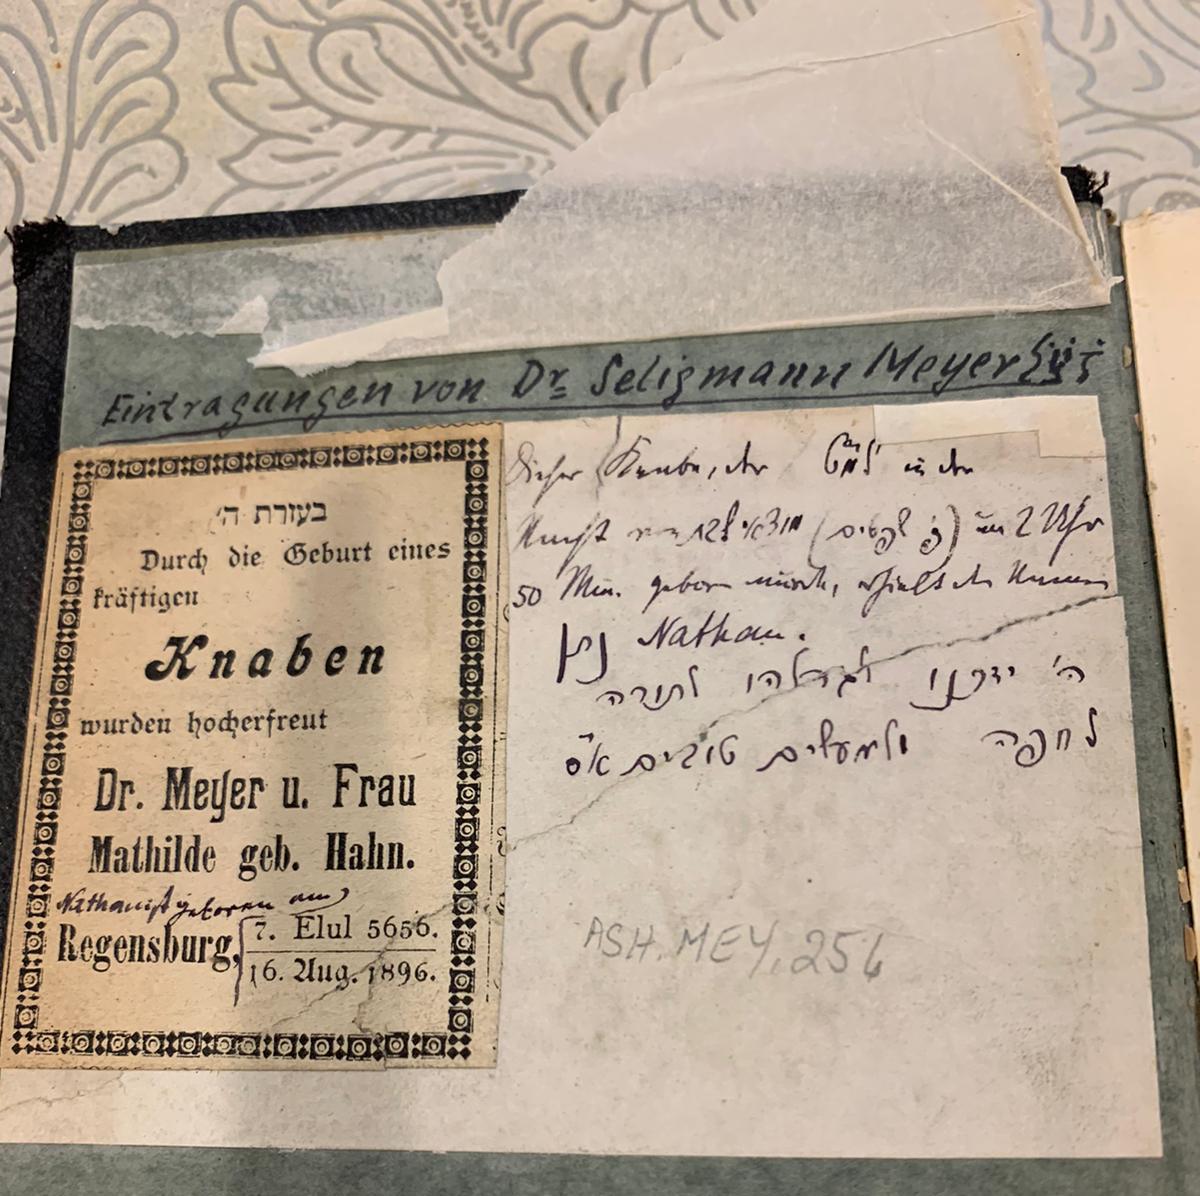 Eintragungen von Dr. Seligmann Meyer זצ"ל
בעזרת ה'
Durch die Geburt eines
kräftigen
Knaben
wurden hocherfreut
Dr. Meyer u. Frau
Mathilde geb. Hahn.
Nathan ist geboren am
Regensburg,
7. Elul 5656.
16. Aug. 1896.
Dieser Knabe, der in der
Nacht מוצאי שבת (פ' שפטים) um 2 Uhr
50 Min. geboren wurde, erhielt den Namen
נתן Nathan.
ה' יזכנו לגדלהו לתורה
לחפה ולמעשים טובים א"ס
ASH. MEY. 256